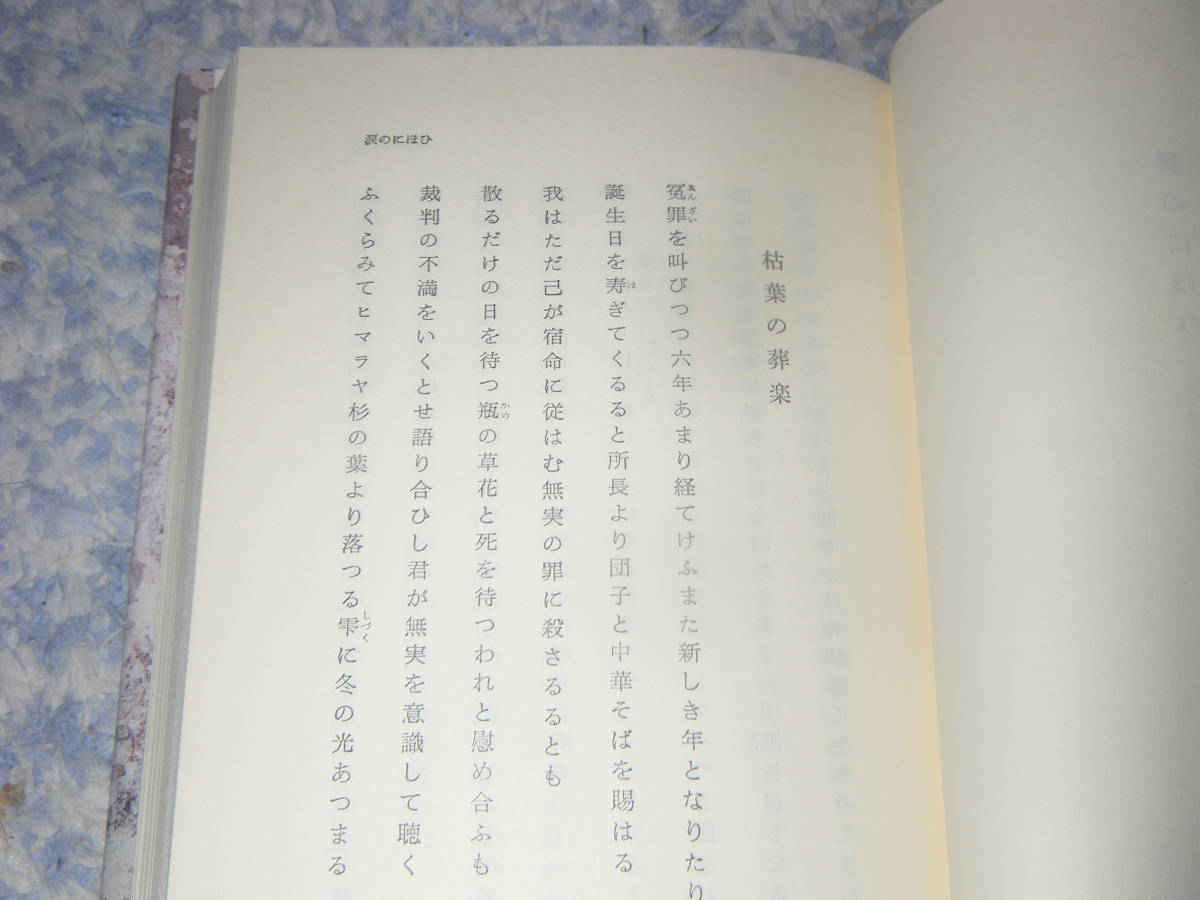 涙のにほひ
枯葉の葬楽
冤罪を叫びつつ六年あまり経てけふまた新しき年となりたり
ゑんざい
誕生日を寿ぎてくるると所長より団子と中華そばを賜はる
ほ
我はただ己が宿命に従はむ無実の罪に殺さるるとも
散るだけの日を待つ瓶の草花と死を待つわれと慰め合ふも
かめ
裁判の不満をいくとせ語り合ひし君が無実を意識して聴く
ふくらみてヒマラヤ杉の葉より落つる雫に冬の光あつまる
しづく